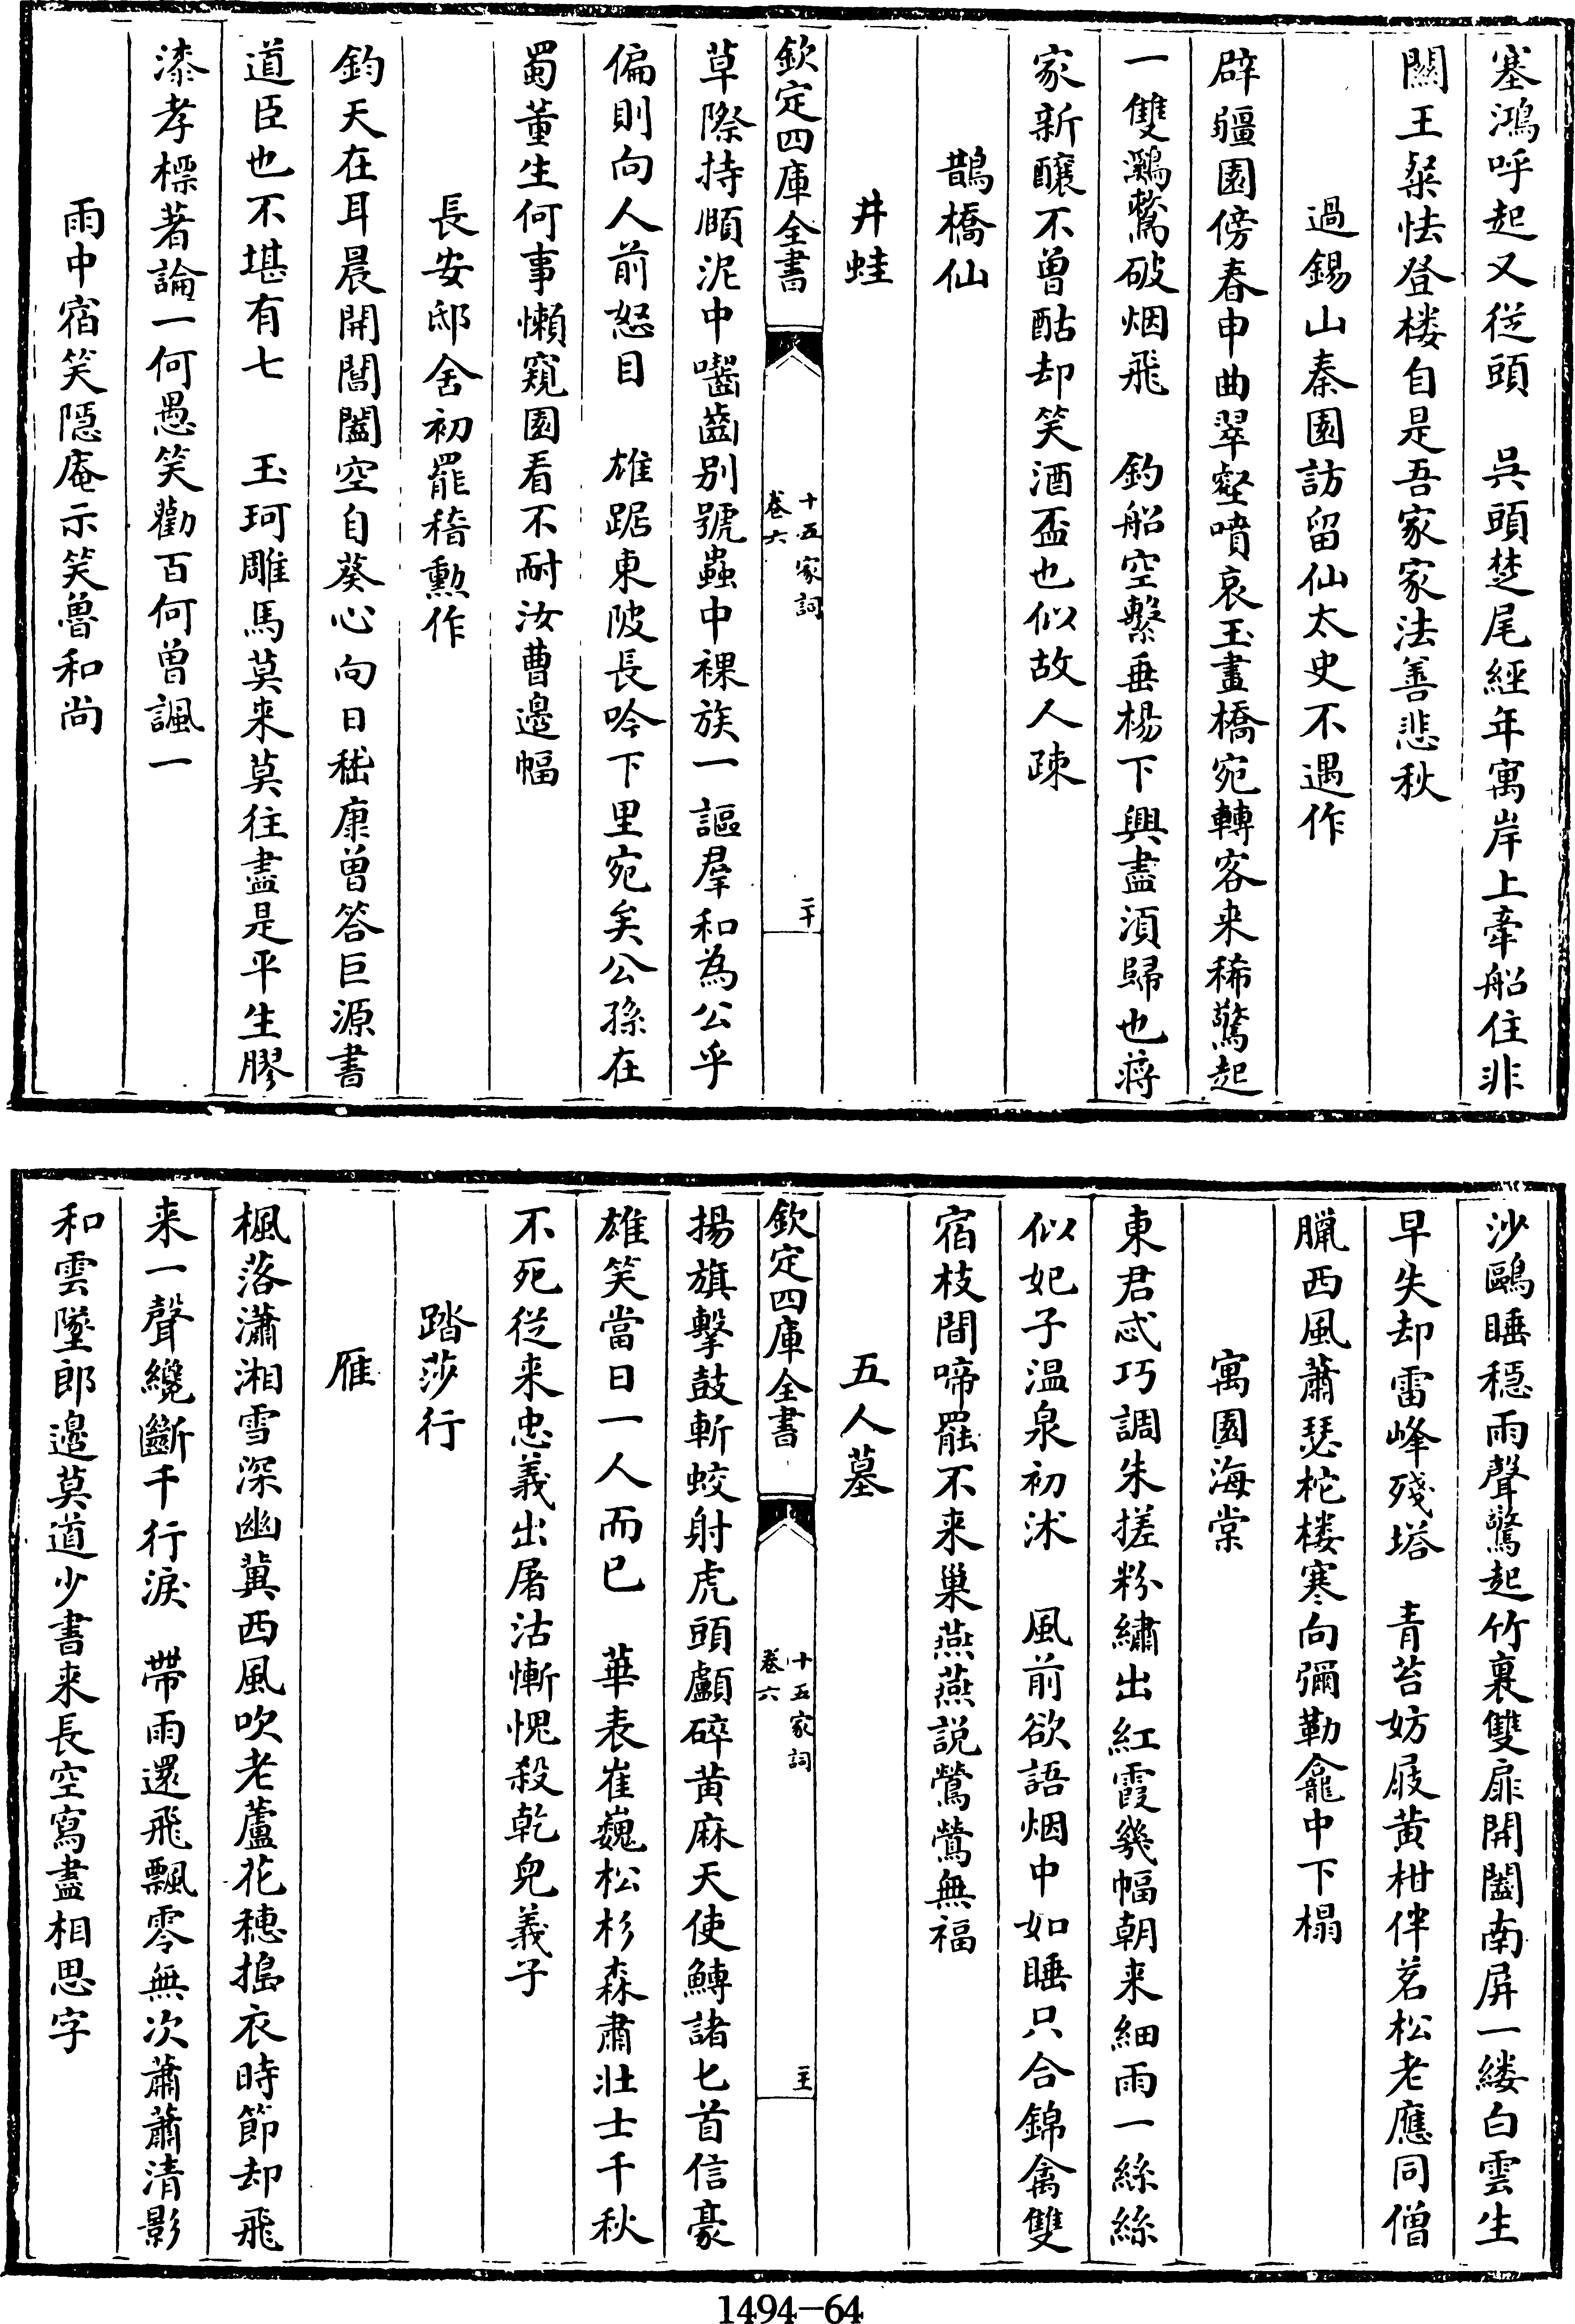 塞鴻呼起又従頭　吳頭楚尾經年寓岸上牽船住非
關王粲怯登楼自是吾家家法善悲秋
過錫山秦園訪留仙太史不遇作
辟疆園傍春申曲翠壑噴哀玉畫橋宛轉客来稀驚起
一雙鸂鶒破烟飛　釣船空繫垂楊下興盡須歸也蔣
家新釀不曾酤却笑酒盃也似故人疎
鵲橋仙
井蛙
欽定四庫全書
十五家詞
卷六
二十
草際持頤泥中囓齒别號蟲中裸族一謳羣和為公乎
偏則向人前怒目　雄踞東陂長吟下里宛矣公孫在
蜀董生何事懶窺園看不耐汝曹邊幅
長安邸舍初罷稽勲作
鈞天在耳晨開閶闔空自葵心向日嵇康曾答巨源書
道臣也不堪有七　玉珂雕馬莫来莫往盡是平生膠
漆孝標著論一何愚笑勸百何曾諷一
雨中宿笑隠庵示笑魯和尚
沙鷗睡穏雨聲驚起竹裏雙扉開闔南屏一縷白雲生
早失却雷峰殘塔　青苔妨屐黄柑伴茗松老應同僧
臘西風蕭瑟柁楼寒向彌勒龕中下榻
寓園海棠
東君忒巧調朱搓粉繡出紅霞幾幅朝来細雨一絲絲
似妃子温泉初沐　風前欲語烟中如睡只合錦禽雙
宿枝間啼罷不来巢燕燕説鶯鶯無福
五人墓
欽定四庫全書
十五家詞
卷六
二十一
揚旗擊鼓斬蛟射虎頭顱碎黄麻天使鱄諸匕首信豪
雄笑當日一人而已　華表崔巍松杉森肅壯士千秋
不死従来忠義出屠沽慚愧殺乾兒義子
踏莎行
雁
楓落瀟湘雪深幽冀西風吹老蘆花穂搗衣時節却飛
来一聲纔斷千行淚　帶雨還飛飄零無次蕭蕭清影
和雲墜郎邊莫道少書来長空寫盡相思字
1494—64